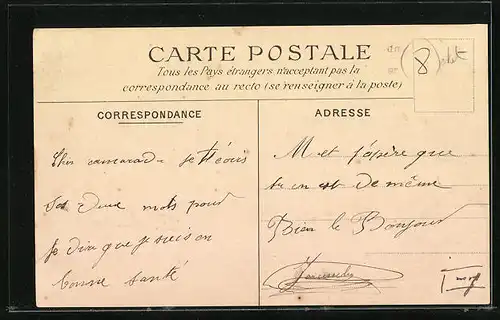 CARTE POSTALE
Tous les Pays étrangers n'acceptant pas la
correspondance au recto (se renseigner à la poste)
8
CORRESPONDANCE
Cher camarade je t'écris
deux mots pour
te dire que je suis en
bonne santé
ADRESSE
M et j'espère que
tu en est de même
Bien le Bonjour